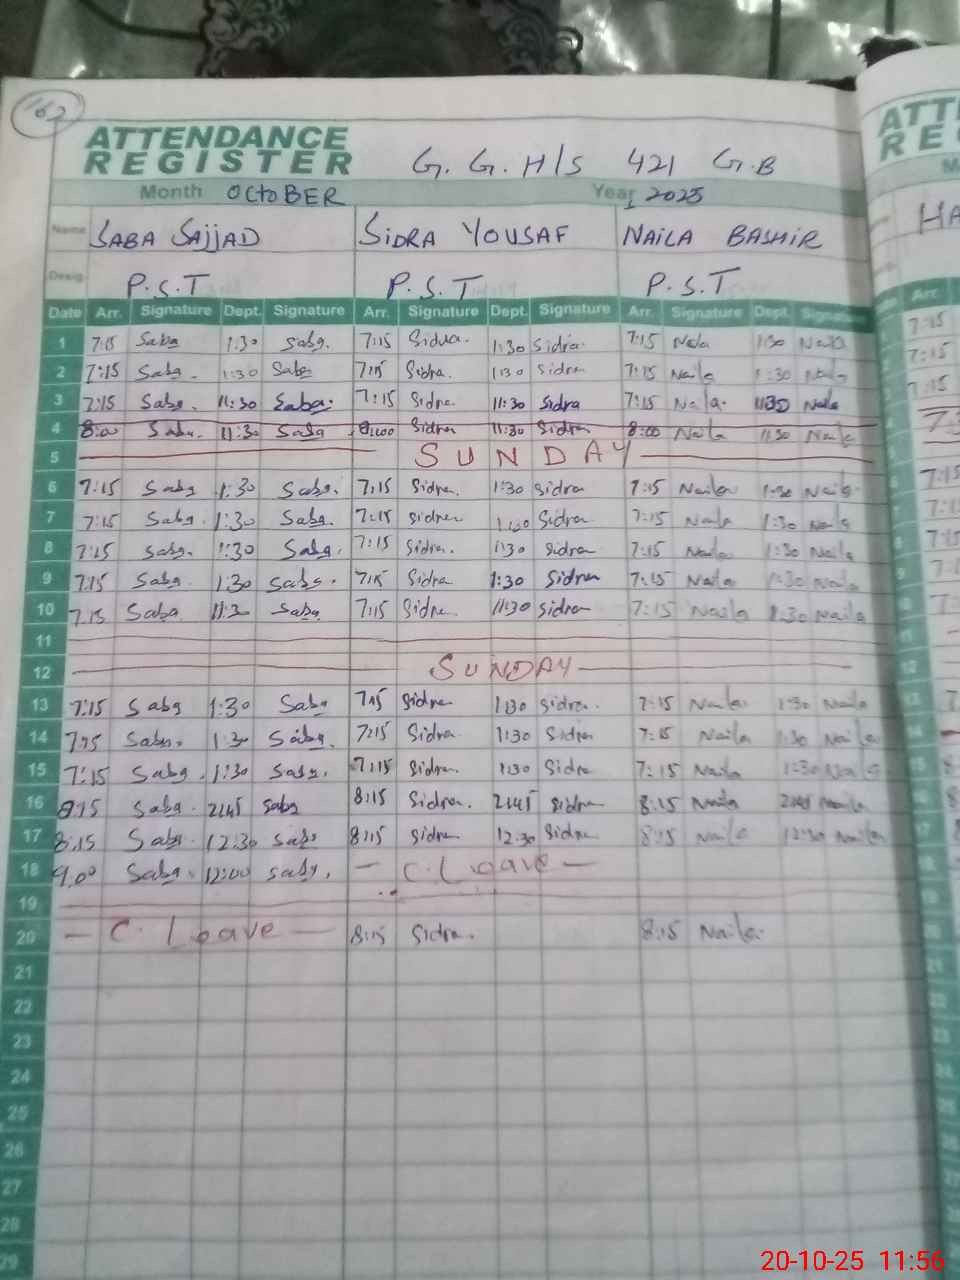 162
ATTENDANCE
REGISTER
G. G. H/S 421 G.B
Month OctOBER Year 2025
Name SABA SAJJAD SIDRA YOUSAF NAILA BASHIR
Desig. P.S.T P.S.T P.S.T
Date Arr. Signature Dept. Signature Arr. Signature Dept. Signature Arr. Signature Dept. Signature
1 7:15 Saba 1:30 Saba. 7:15 Sidra. 1:30 Sidra 7:15 Naila 1:30 Naila
2 7:15 Saba. 1:30 Saba 7:15 Sidra. 1:30 Sidra 7:15 Naila 1:30 Naila
3 7:15 Saba. 11:30 Saba. 7:15 Sidra. 11:30 Sidra 7:15 Naila. 1130 Naila
4 8:00 Saba. 11:30 Saba 8:00 Sidra 11:30 Sidra 8:00 Naila 11:30 Naila
5 SUNDAY
6 7:15 Saba 1:30 Saba. 7:15 Sidra. 1:30 Sidra 7:15 Naila 1:30 Naila
7 7:15 Saba. 1:30 Saba. 7:15 Sidra Sidra 7:15 Naila 1:30 Naila
8 7:15 Saba. 1:30 Saba. 7:15 Sidra. 1:30 Sidra 7:15 Naila 1:30 Naila
9 7:15 Saba. 1:30 Saba. 7:15 Sidra 1:30 Sidra 7:15 Naila 1:30 Naila
10 7:15 Saba 11:30 Saba 7:15 Sidra. 11:30 Sidra 7:15 Naila 11:30 Naila
11
12 SUNDAY
13 7:15 Saba 1:30 Saba 7:15 Sidra 1:30 Sidra. 7:15 Naila 1:30 Naila
14 7:15 Saba. 1:30 Saba. 7:15 Sidra. 1:30 Sidra 7:15 Naila 1:30 Naila
15 7:15 Saba. 1:30 Saba. 7:15 Sidra. 1:30 Sidra 7:15 Naila 1:30 Naila
16 8:15 Saba. 2:45 Saba 8:15 Sidra. 2:45 Sidra 8:15 Naila 2:45 Naila
17 8:15 Saba. 12:30 Saba 8:15 Sidra 12:30 Sidra 8:15 Naila 12:30 Naila
18 9.00 Saba. 12:00 Saba. — C. Leave —
19
20 — C. Leave — 8:15 Sidra. 8:15 Naila.
21
22
23
24
25
26
27
28
29
ATT
RE
HA
Arr.
7:15
7:15
7:15
20-10-25 11:56